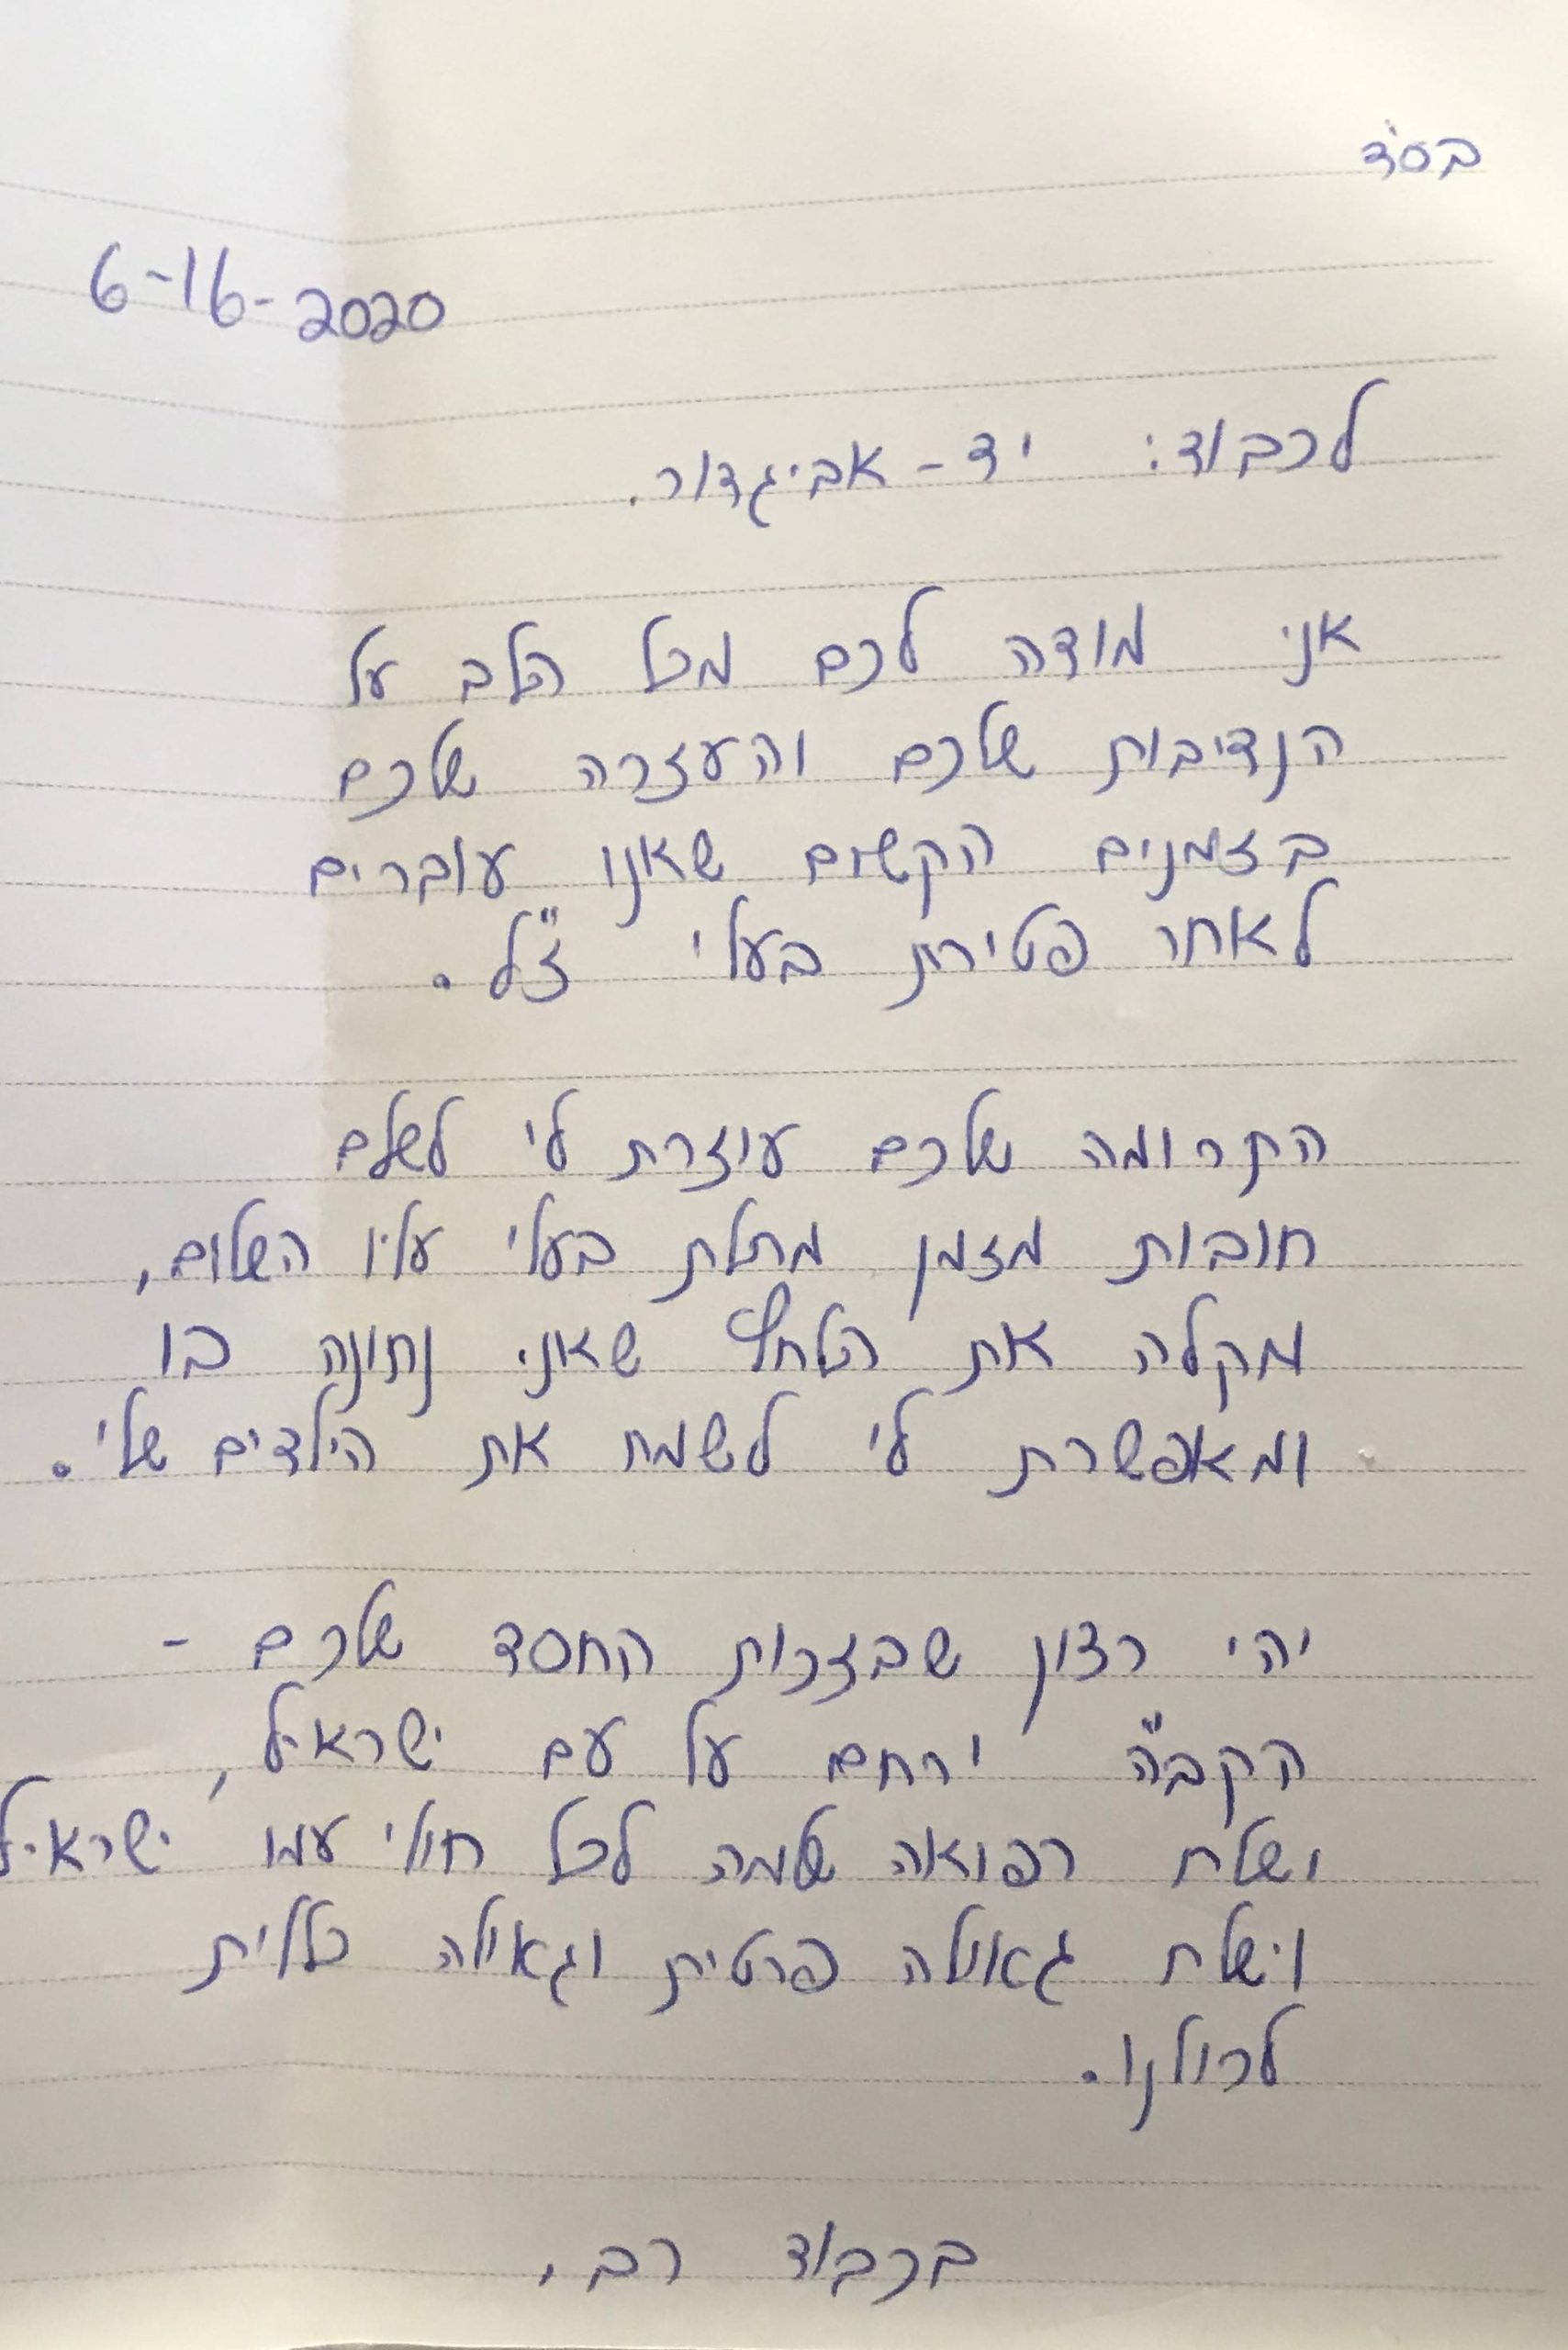 בס"ד
6-16-2020
לכבוד: יד - אביגדור.
אני מודה לכם מכל הלב על
הנדיבות שלכם והעזרה שלכם
בזמנים הקשים שאנו עוברים
לאחר פטירת בעלי ז"ל.
התרומה שלכם עוזרת לי לשלם
חובות מזמן מחלת בעלי עליו השלום,
מקלה את הלחץ שאני נתונה בו
ומאפשרת לי לשמח את הילדים שלי.
יהי רצון שבזכות החסד שלכם -
הקב"ה ירחם על עם ישראל,
ישלח רפואה שלמה לכל חולי עמו ישראל
וישלח גאולה פרטית וגאולה כללית
לכולנו.
בכבוד רב,